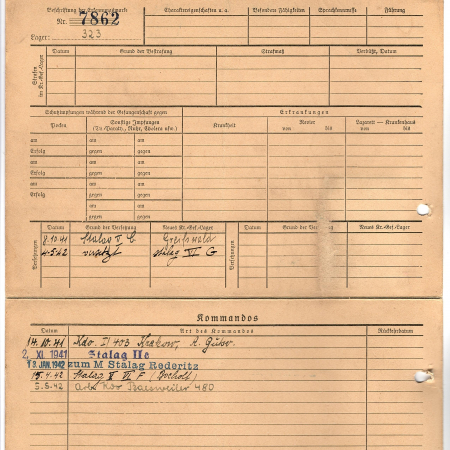 Beschriftung der Erkennungsmarke
Nr. 7862
Lager: 323
Charaktereigenschaften u. a.
Besondere Fähigkeiten
Sprachkenntnisse
Führung
Strafen im Kr.-Gef.-Lager
Datum Grund der Bestrafung Strafmaß Verbüßt, Datum
Schutzimpfungen während der Gefangenschaft gegen
Erkrankungen
Pocken
Sonstige Impfungen
(Ty. Paratyph., Ruhr, Cholera usw.)
Krankheit
Revier
von bis
Lazarett — Krankenhaus
von bis
am am
Erfolg gegen gegen
am am
Erfolg gegen gegen
am am
Erfolg gegen gegen
am
gegen gegen
Versetzungen
Datum Grund der Versetzung Neues Kr.-Gef.-Lager
Versetzungen
Datum Grund der Versetzung Neues Kr.-Gef.-Lager
8.10.41 Stalag II C Greifswald
4.5.42 versetzt Stalag VI G
Kommandos
Datum Art des Kommandos Rückkehrdatum
14.10.41 Kdo. II 403
2. XI. 1941 Stalag IIc
JAN. 1942 zum M Stalag Rederitz
15.4.42 Stalag VI F (Bocholt)
5.5.42 Arb. Kdo Baesweiler 480